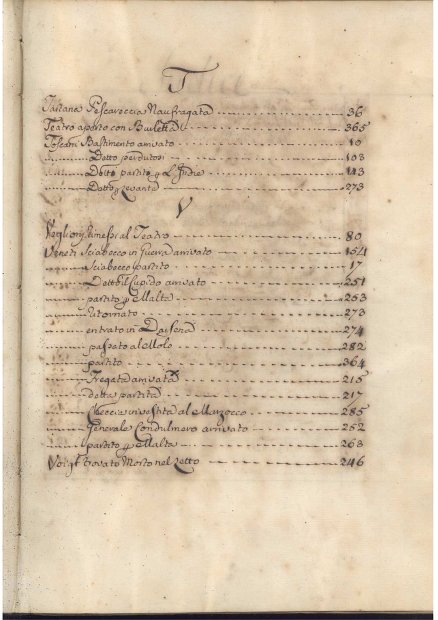 T
Tartana Pescareccia Naufragata 36
Teatro aperto con Burletta 365
Toscani Bastimento arrivato 10
Detto perdutosi 108
Detto partito p L'Indie 143
Detto p Levante 273
V
Veglioni rimessi al Teatro 80
Veneti Sciabecco in Guerra arrivato 154
Sciabecco partito 17
Detto il Cupido arrivato 251
partito p Malta 253
ritornato 273
entrato in Darsena 274
passato al Molo 282
partito 364
Fregata arrivata 215
detta partita 217
Checcia investita al Marzocco 285
Generale Condulmero arrivato 252
partito p Malta 263
trovato Morto nel Letto 246